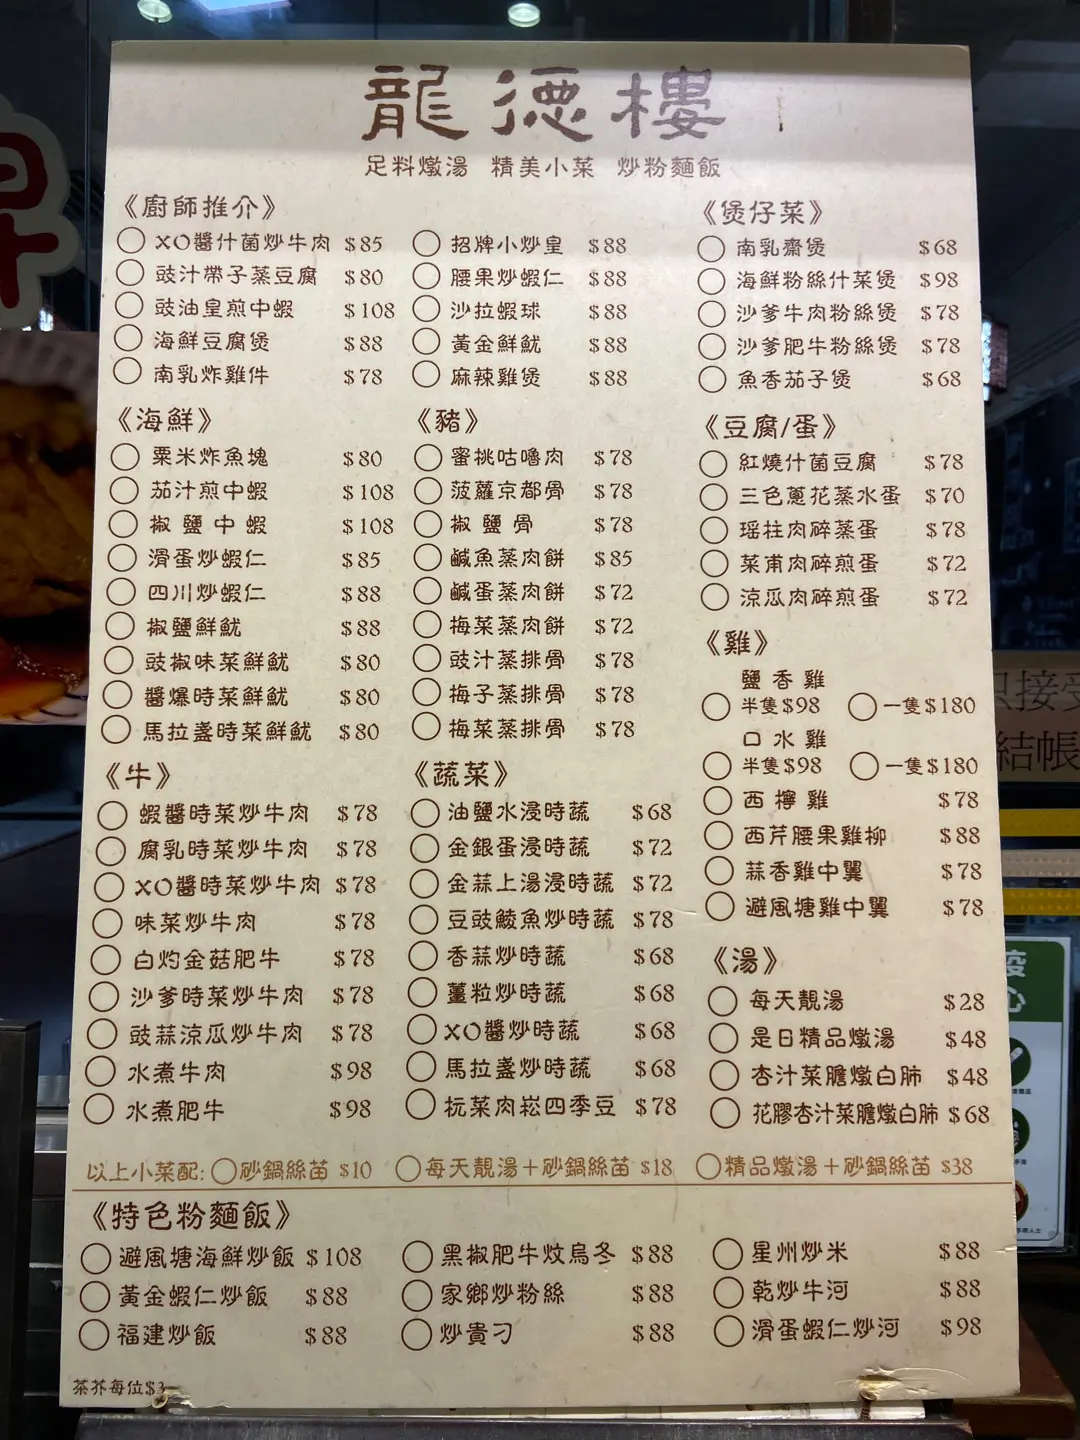 龍德樓
足料燉湯 精美小菜 炒粉麵飯
《廚師推介》
XO醬什菌炒牛肉 $85
豉汁帶子蒸豆腐 $80
豉油皇煎中蝦 $108
海鮮豆腐煲 $88
南乳炸雞件 $78
招牌小炒皇 $88
腰果炒蝦仁 $88
沙拉蝦球 $88
黃金鮮魷 $88
麻辣雞煲 $88
《煲仔菜》
南乳齋煲 $68
海鮮粉絲什菜煲 $98
沙爹牛肉粉絲煲 $78
沙爹肥牛粉絲煲 $78
魚香茄子煲 $68
《海鮮》
粟米炸魚塊 $80
茄汁煎中蝦 $108
椒鹽中蝦 $108
滑蛋炒蝦仁 $85
四川炒蝦仁 $88
椒鹽鮮魷 $88
豉椒味菜鮮魷 $80
醬爆時菜鮮魷 $80
馬拉盞時菜鮮魷 $80
《豬》
蜜桃咕嚕肉 $78
菠蘿京都骨 $78
椒鹽骨 $78
鹹魚蒸肉餅 $85
鹹蛋蒸肉餅 $72
梅菜蒸肉餅 $72
豉汁蒸排骨 $78
梅子蒸排骨 $78
梅菜蒸排骨 $78
《豆腐/蛋》
紅燒什菌豆腐 $78
三色蔥花蒸水蛋 $70
瑤柱肉碎蒸蛋 $78
菜甫肉碎煎蛋 $72
涼瓜肉碎煎蛋 $72
《雞》
鹽香雞
半隻$98 一隻$180
口水雞
半隻$98 一隻$180
西檸雞 $78
西芹腰果雞柳 $88
蒜香雞中翼 $78
避風塘雞中翼 $78
《牛》
蝦醬時菜炒牛肉 $78
腐乳時菜炒牛肉 $78
XO醬時菜炒牛肉 $78
味菜炒牛肉 $78
白灼金菇肥牛 $78
沙爹時菜炒牛肉 $78
豉蒜涼瓜炒牛肉 $78
水煮牛肉 $98
水煮肥牛 $98
《蔬菜》
油鹽水浸時蔬 $68
金銀蛋浸時蔬 $72
金蒜上湯浸時蔬 $72
豆豉鯪魚炒時蔬 $78
香蒜炒時蔬 $68
薑粒炒時蔬 $68
XO醬炒時蔬 $68
馬拉盞炒時蔬 $68
杬菜肉崧四季豆 $78
《湯》
每天靚湯 $28
是日精品燉湯 $48
杏汁菜膽燉白肺 $48
花膠杏汁菜膽燉白肺 $68
以上小菜配: 砂鍋絲苗 $10 每天靚湯+砂鍋絲苗 $18 精品燉湯+砂鍋絲苗 $38
《特色粉麵飯》
避風塘海鮮炒飯 $108
黃金蝦仁炒飯 $88
福建炒飯 $88
黑椒肥牛炆烏冬 $88
家鄉炒粉絲 $88
炒貴刁 $88
星州炒米 $88
乾炒牛河 $88
滑蛋蝦仁炒河 $98
茶芥每位$3
只接受
結帳